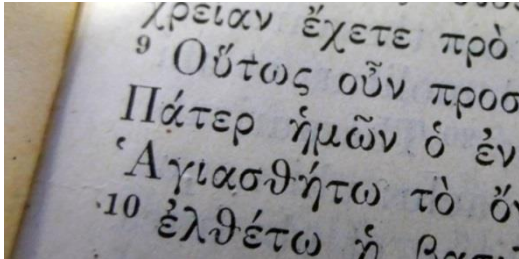 χρειαν ἔχετε πρὸ
9 Οὕτως οὖν προσ
Πάτερ ἡμῶν ὁ ἐν
Ἁγιασθήτω τὸ
10 ἐλθέτω ἡ